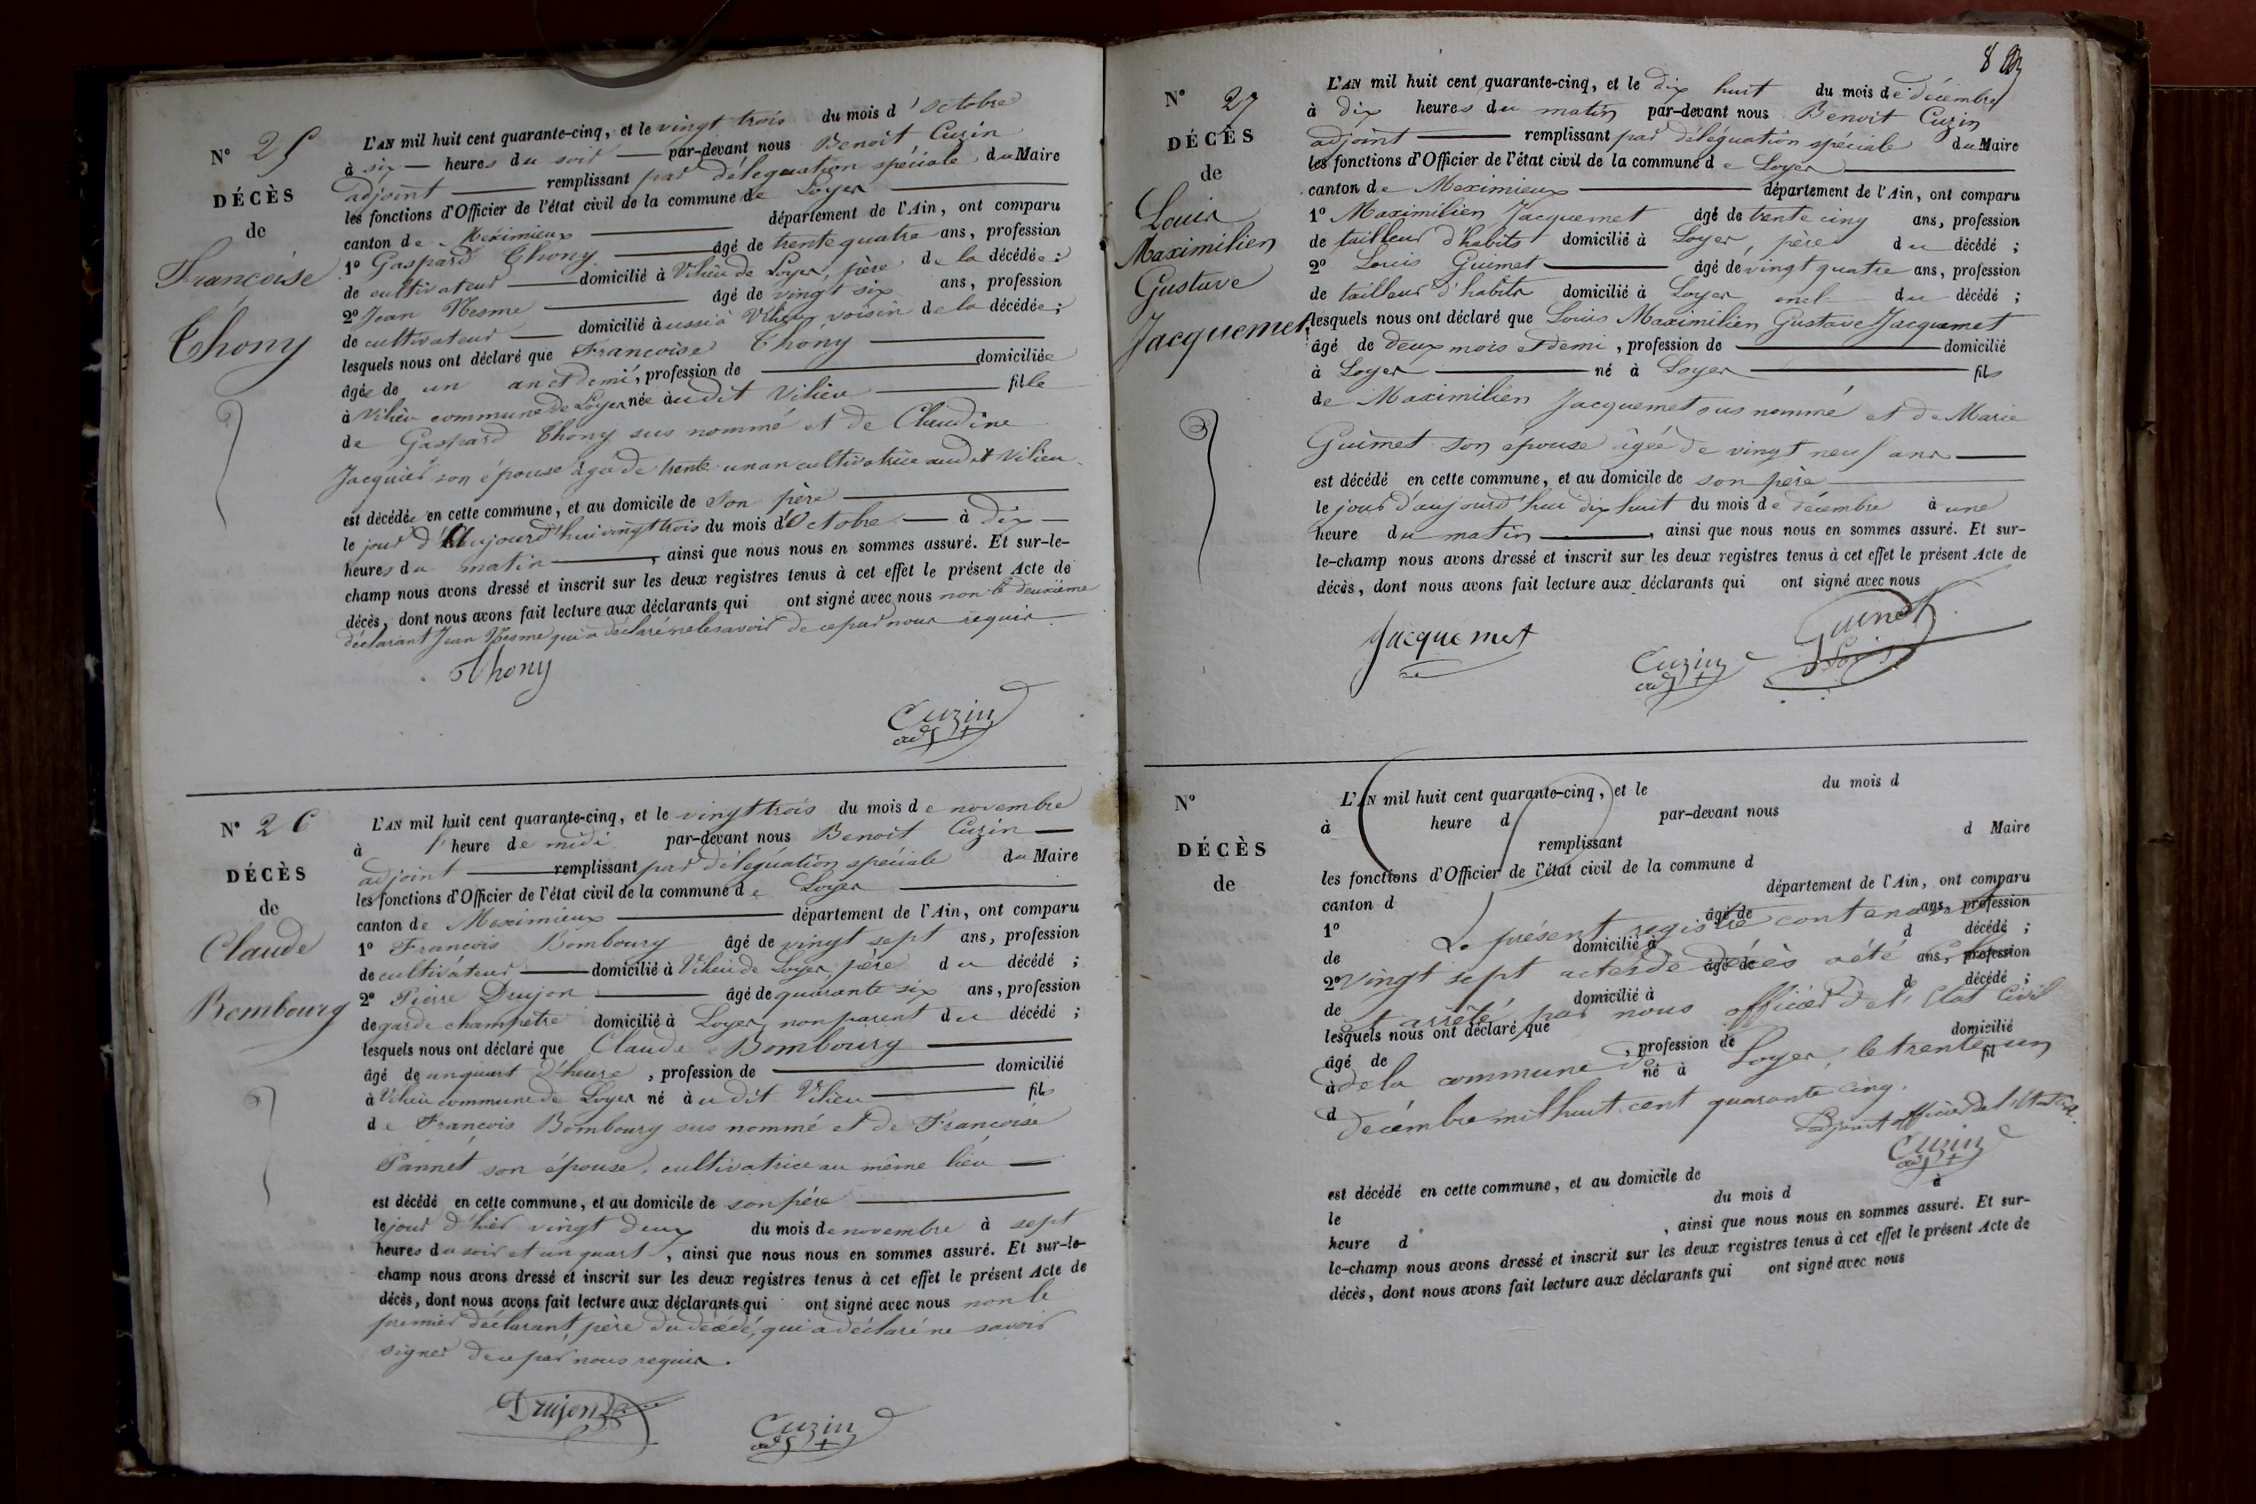 N° 25
DÉCÈS
de
Françoise
Thony
L'AN mil huit cent quarante-cinq, et le vingt trois du mois d'octobre
à six heures du soir par-devant nous Benoit Cuzin
adjoint remplissant par délégation spéciale du Maire
les fonctions d'Officier de l'état civil de la commune de Loyer
canton de Meximieux département de l'Ain, ont comparu
1° Gaspard Thony âgé de trente quatre ans, profession
de cultivateur domicilié à Vilieu de Loyer, père de la décédée ;
2° Jean Nesme âgé de vingt six ans, profession
de cultivateur domicilié à aussi à Vilieu, voisin de la décédée ;
lesquels nous ont déclaré que Françoise Thony
âgée de un an et demi, profession de domiciliée
à Vilieu commune de Loyer née à audit Vilieu fille
de Gaspard Thony sus nommé et de Claudine
Jacquier son épouse âgée de trente un an cultivatrice audit Vilieu
est décédée en cette commune, et au domicile de son père
le jour d'aujourd'hui vingt trois du mois d'Octobre à dix
heures du matin, ainsi que nous nous en sommes assuré. Et sur-le-
champ nous avons dressé et inscrit sur les deux registres tenus à cet effet le présent Acte de
décès, dont nous avons fait lecture aux déclarants qui ont signé avec nous non le deuxième
déclarant Jean Nesme qui a déclaré ne le savoir de ce par nous requis
Thony
Cuzin
adjt
N° 26
DÉCÈS
de
Claude
Bombourg
L'AN mil huit cent quarante-cinq, et le vingt trois du mois de novembre
à l'heure de midi par-devant nous Benoit Cuzin
adjoint remplissant par délégation spéciale du Maire
les fonctions d'Officier de l'état civil de la commune de Loyer
canton de Meximieux département de l'Ain, ont comparu
1° François Bombourg âgé de vingt sept ans, profession
de cultivateur domicilié à Vilieu de Loyer, père du décédé ;
2° Pierre Drujon âgé de quarante six ans, profession
de garde champêtre domicilié à Loyer, non parent du décédé ;
lesquels nous ont déclaré que Claude Bombourg
âgé de un quart d'heure, profession de domicilié
à Vilieu commune de Loyer né à udit Vilieu fils
de François Bombourg sus nommé et de Françoise
Pannet son épouse, cultivatrice au même lieu
est décédé en cette commune, et au domicile de son père
le jour d'hier vingt deux du mois de novembre à sept
heures du soir et un quart, ainsi que nous nous en sommes assuré. Et sur-le-
champ nous avons dressé et inscrit sur les deux registres tenus à cet effet le présent Acte de
décès, dont nous avons fait lecture aux déclarants qui ont signé avec nous non le
premier déclarant, père du décédé, qui a déclaré ne savoir
signer de ce par nous requis.
Drujon
Cuzin
adjt
8
N° 27
DÉCÈS
de
Louis
Maximilien
Gustave
Jacquemet
L'AN mil huit cent quarante-cinq, et le dix huit du mois de décembre
à dix heures du matin par-devant nous Benoit Cuzin
adjoint remplissant par déléguation spéciale du Maire
les fonctions d'Officier de l'état civil de la commune de Loyer
canton de Meximieux département de l'Ain, ont comparu
1° Maximilien Jacquemet âgé de trente cinq ans, profession
de tailleur d'habits domicilié à Loyer, père du décédé ;
2° Louis Guimet âgé de vingt quatre ans, profession
de tailleur d'habits domicilié à Loyer oncle du décédé ;
lesquels nous ont déclaré que Louis Maximilien Gustave Jacquemet
âgé de deux mois et demi, profession de domicilié
à Loyer né à Loyer fils
de Maximilien Jacquemet sus nommé et de Marie
Guimet son épouse âgée de vingt neuf ans
est décédé en cette commune, et au domicile de son père
le jour d'aujourd'hui dix huit du mois de décembre à une
heure du matin, ainsi que nous nous en sommes assuré. Et sur-
le-champ nous avons dressé et inscrit sur les deux registres tenus à cet effet le présent Acte de
décès, dont nous avons fait lecture aux déclarants qui ont signé avec nous
Jacquemet
Cuzin
adjt
Guimet
Louis
N°
DÉCÈS
de
L'AN mil huit cent quarante-cinq, et le du mois d
à heure d par-devant nous
remplissant d Maire
les fonctions d'Officier de l'état civil de la commune d
canton d département de l'Ain, ont comparu
1° âgé de ans, profession
Le présent registre contenant
de domicilié à d décédé ;
2° âgé de ans, profession
vingt sept actes de décès a été clos
de domicilié à d décédé ;
et arrêté par nous officier de l'Etat Civil
lesquels nous ont déclaré que
âgé de , profession de domicilié
de la commune de Loyer, le trente un
à né à fil
d
décembre mil huit cent quarante cinq.
L'adjoint officier de l'état civil
Cuzin
adjt
est décédé en cette commune, et au domicile de
le du mois d à
heure d , ainsi que nous nous en sommes assuré. Et sur-
le-champ nous avons dressé et inscrit sur les deux registres tenus à cet effet le présent Acte de
décès, dont nous avons fait lecture aux déclarants qui ont signé avec nous